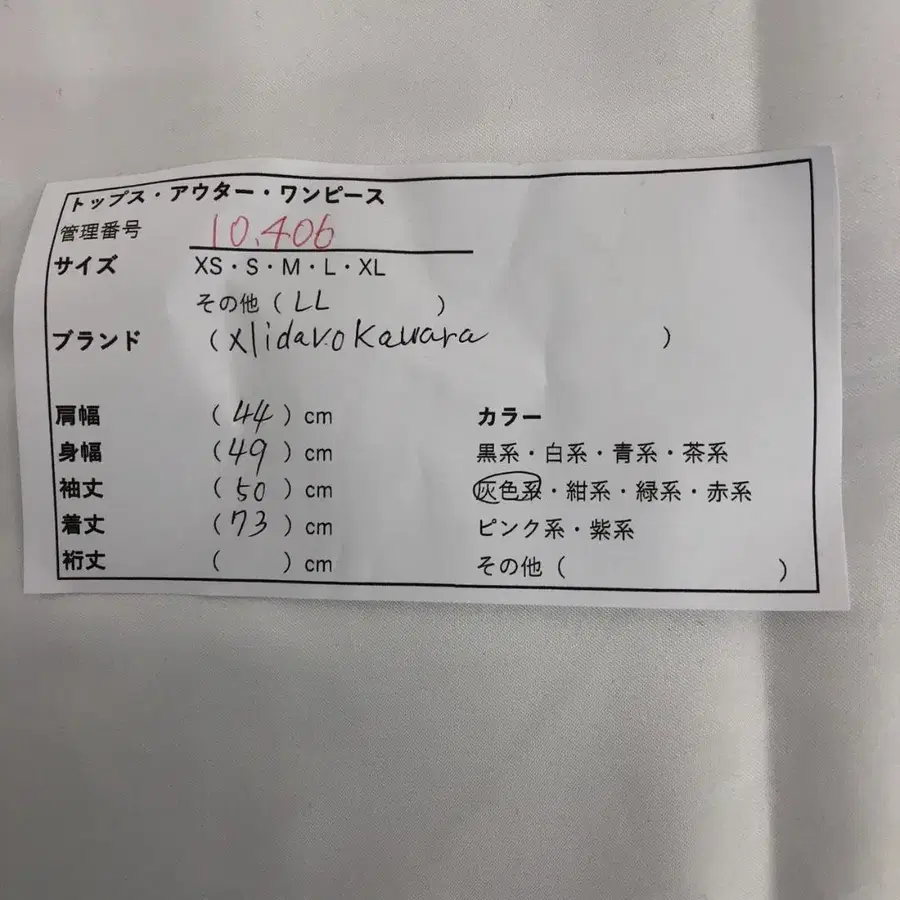 トップス・アウター・ワンピース
管理番号 10.406
サイズ XS・S・M・L・XL
その他（LL ）
ブランド （ Kawara ）
肩幅 （44）cm カラー
身幅 （49）cm 黒系・白系・青系・茶系
袖丈 （50）cm 灰色系・紺系・緑系・赤系
着丈 （73）cm ピンク系・紫系
裄丈 （ ）cm その他（ ）